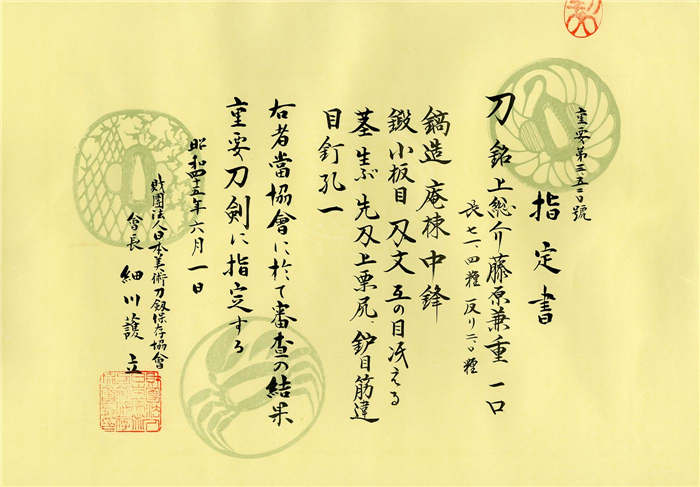 指定書
刀 銘 上総介藤原兼重 一口
長 七一・四糎 反り 二・〇糎
鎬造 庵棟 中鋒
鍛 小板目 刃文 互の目冴える
茎 生ぶ 先刃上栗尻 鈩目筋違
目釘孔一
右者當協會に於て審査の結果
重要刀剣に指定する
昭和四十五年六月一日
財團法人日本美術刀剱保存協會
會長 細川護立